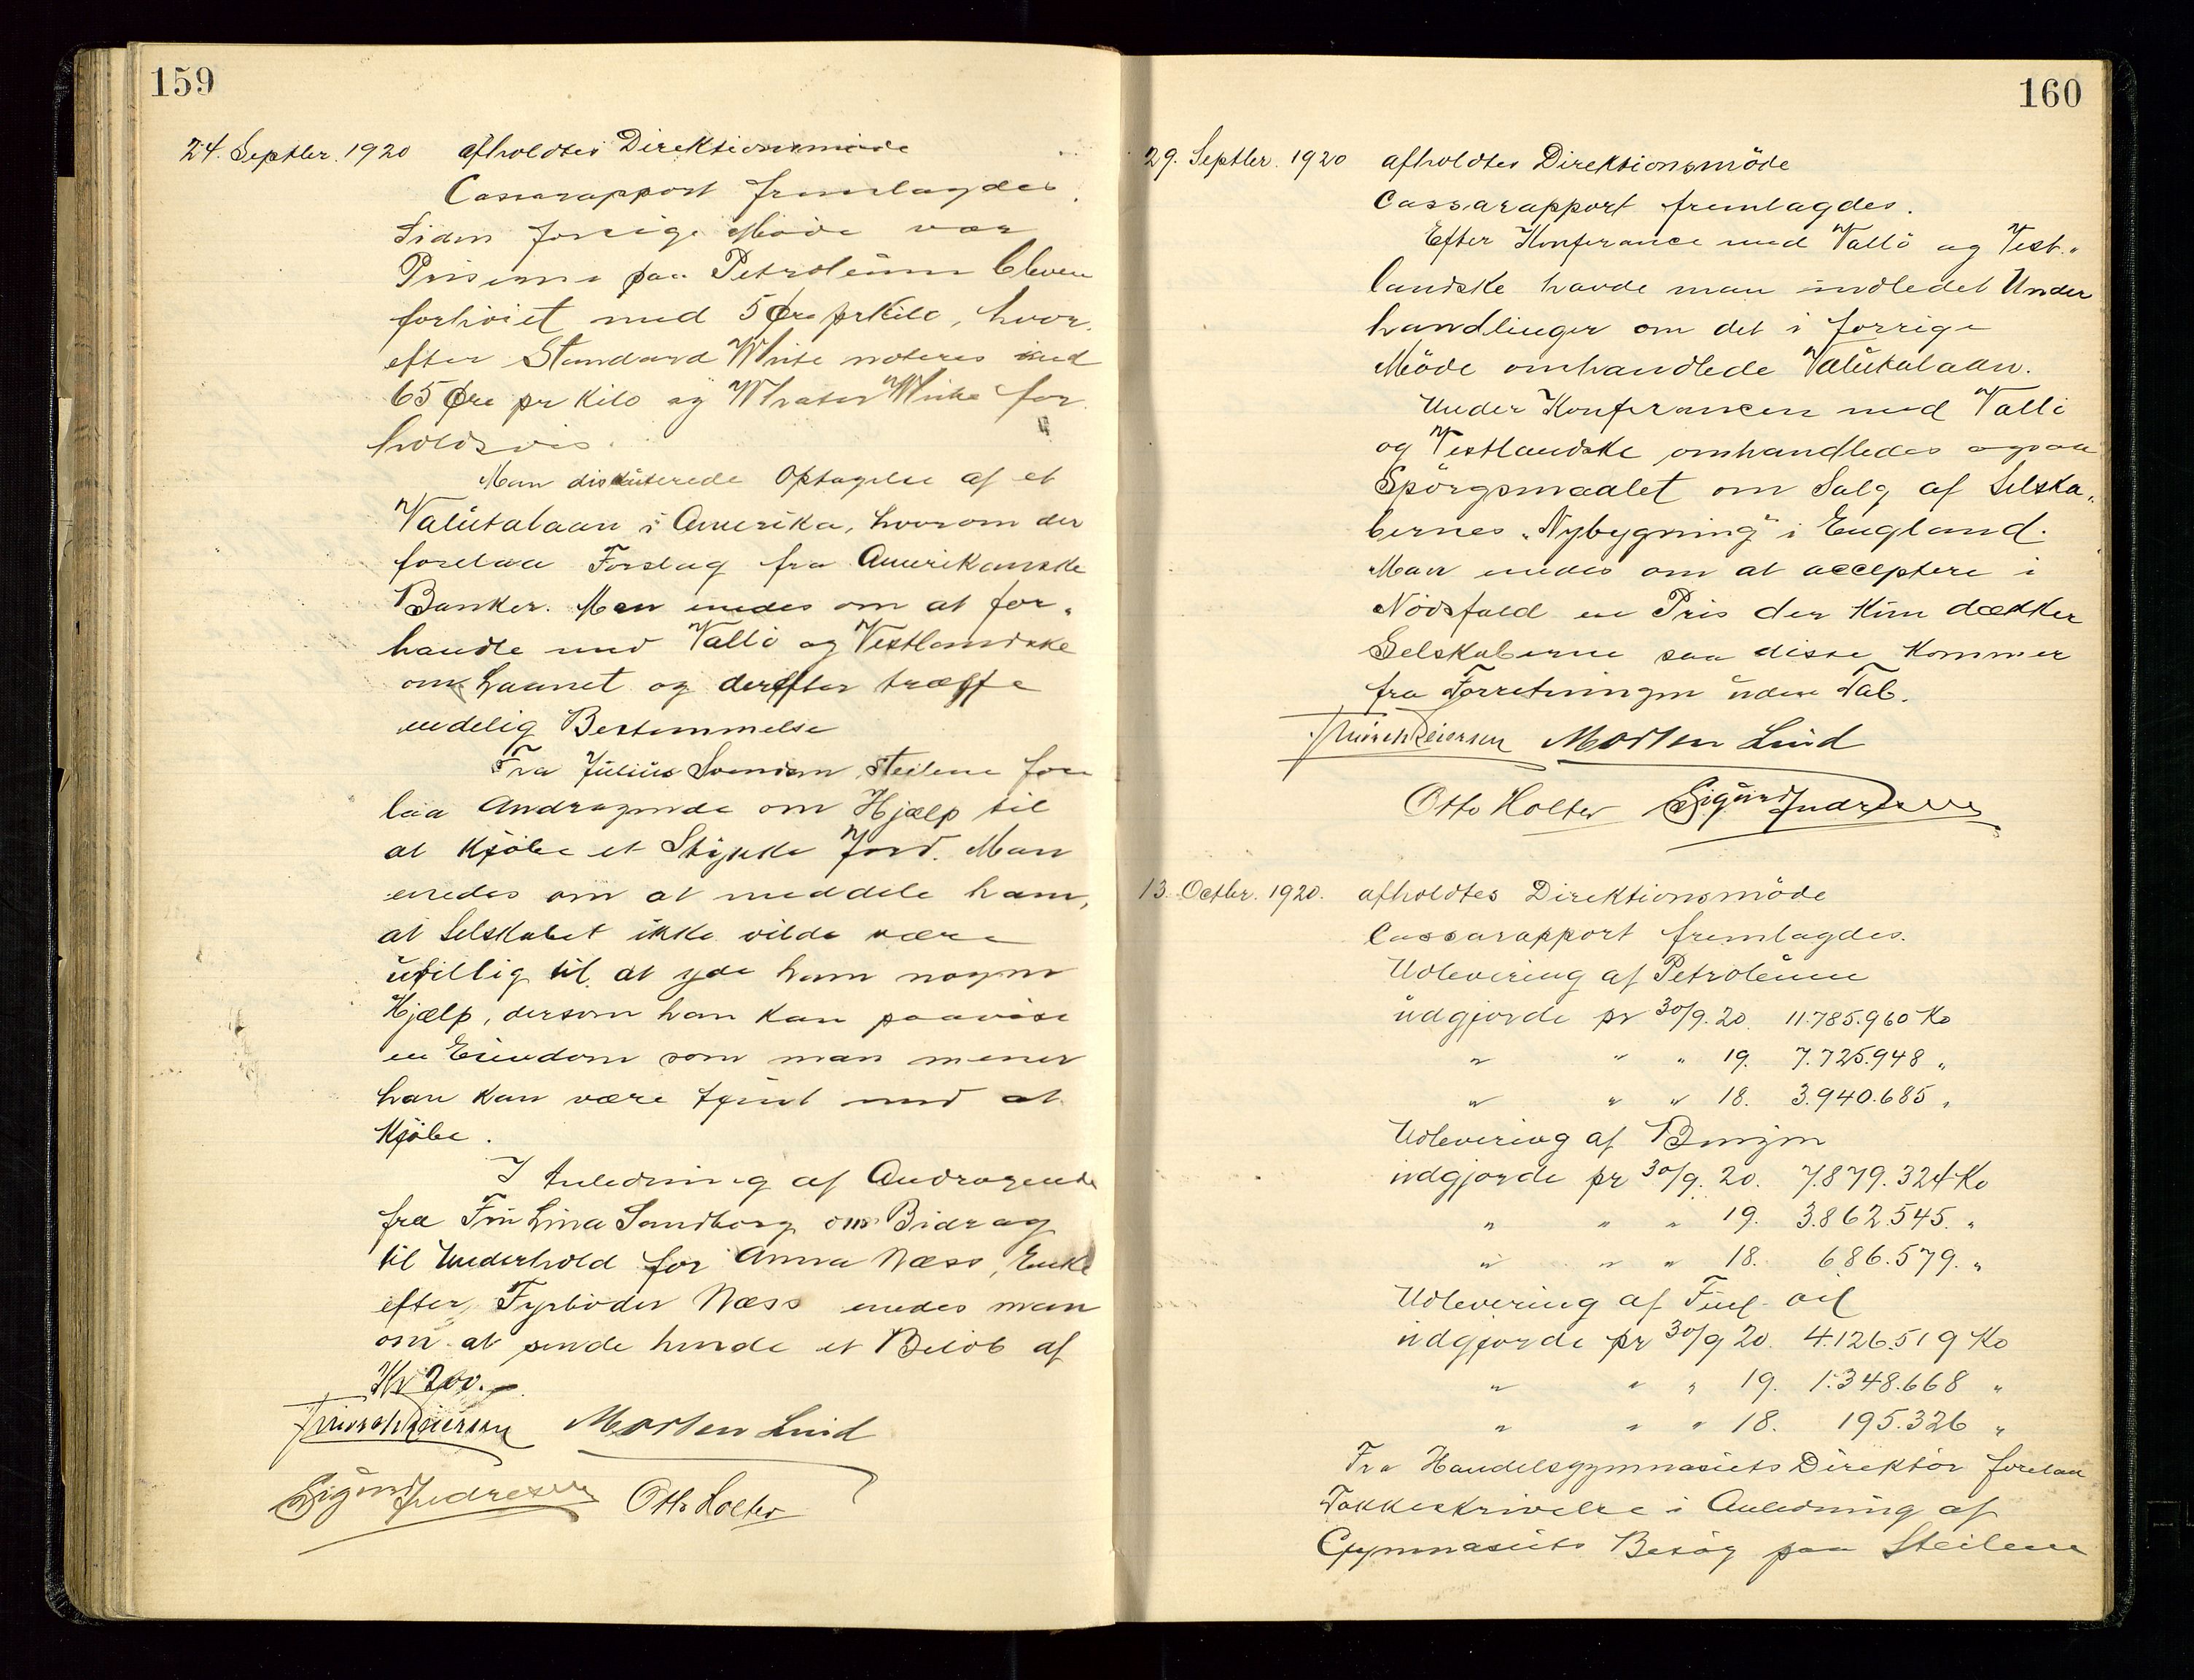 159
24. Septbr. 1920 afholdtes Direktionsmöde
Cassarapport fremlagdes.
Siden forrige Möde var
Priserne paa Petroleum bleven
forhöiet med 5 Øre pr Kilo, hvor-
efter Standard White noteres med
65 Øre pr Kilo og Whater White for-
holdsvis.
Man diskuterede Optagelse af et
Valutalaan i Amerika, hvorom der
forelaa Forslag fra Amerikanske
Banker. Man enedes om at for-
handle med Vallö og Vestlandske
om Laanet og derefter træffe
endelig Bestemmelse
Fra Julius Svendsen, Steilene fore
laa Andragende om Hjælp til
at Kjöbe et Stykke Jord. Man
enedes om at meddele ham,
at Selskabet ikke vilde være
uvillig til at yde ham nogen
Hjælp, dersom han kan paavise
en Eiendom som man mener
han kan være tjent med at
Kjöbe.
I Anledning af Andragende
fra Fru Lina Sandborg om Bidrag
til Underhold for Anna Næss, Enke
efter Fyrböder Næss enedes man
om at sende hende et Belöb af
Kr 200.-
Morten Lind
Sigurd Andresen Otto Holter
160
29. Septbr. 1920 afholdtes Direktionsmöde
Cassarapport fremlagdes.
Efter Konferance med Vallö og Vest-
landske havde man indledet Under
handlinger om det i forrige
Möde omhandlede Valutalaan.
Under Konferancen med Vallö
og Vestlandske omhandledes ogsaa
Spörgsmaalet om Salg af Selska-
bernes „Nybygning" i England.
Man enedes om at acceptere i
Nödsfald en Pris der Kun dækker
Selskaberne saa disse Kommer
fra Forretningen uden Tab.
Morten Lind
Otto Holter Sigurd Andresen
13. Octbr. 1920. afholdtes Direktionsmöde
Cassarapport fremlagdes.
Udlevering af Petroleum
udgjorde pr 30/9. 20. 11.785.960 Ko
" " " 19. 7.725.948 "
" " " 18. 3.940.685 "
Udlevering af Benzin
udgjorde pr 30/9. 20. 7.879.324 Ko
" " " 19. 3.862.545. "
" " " 18. 686.579. "
Udlevering af Fuel-oil
udgjorde pr 30/9 20. 4.126.519 Ko
" " " 19. 1.348.668 "
" " " 18. 195.326 "
Fra Handelsgymnasiets Direktör forelaa
Takkeskrivelse i Anledning af
Gymnasiets Besög paa Steilene